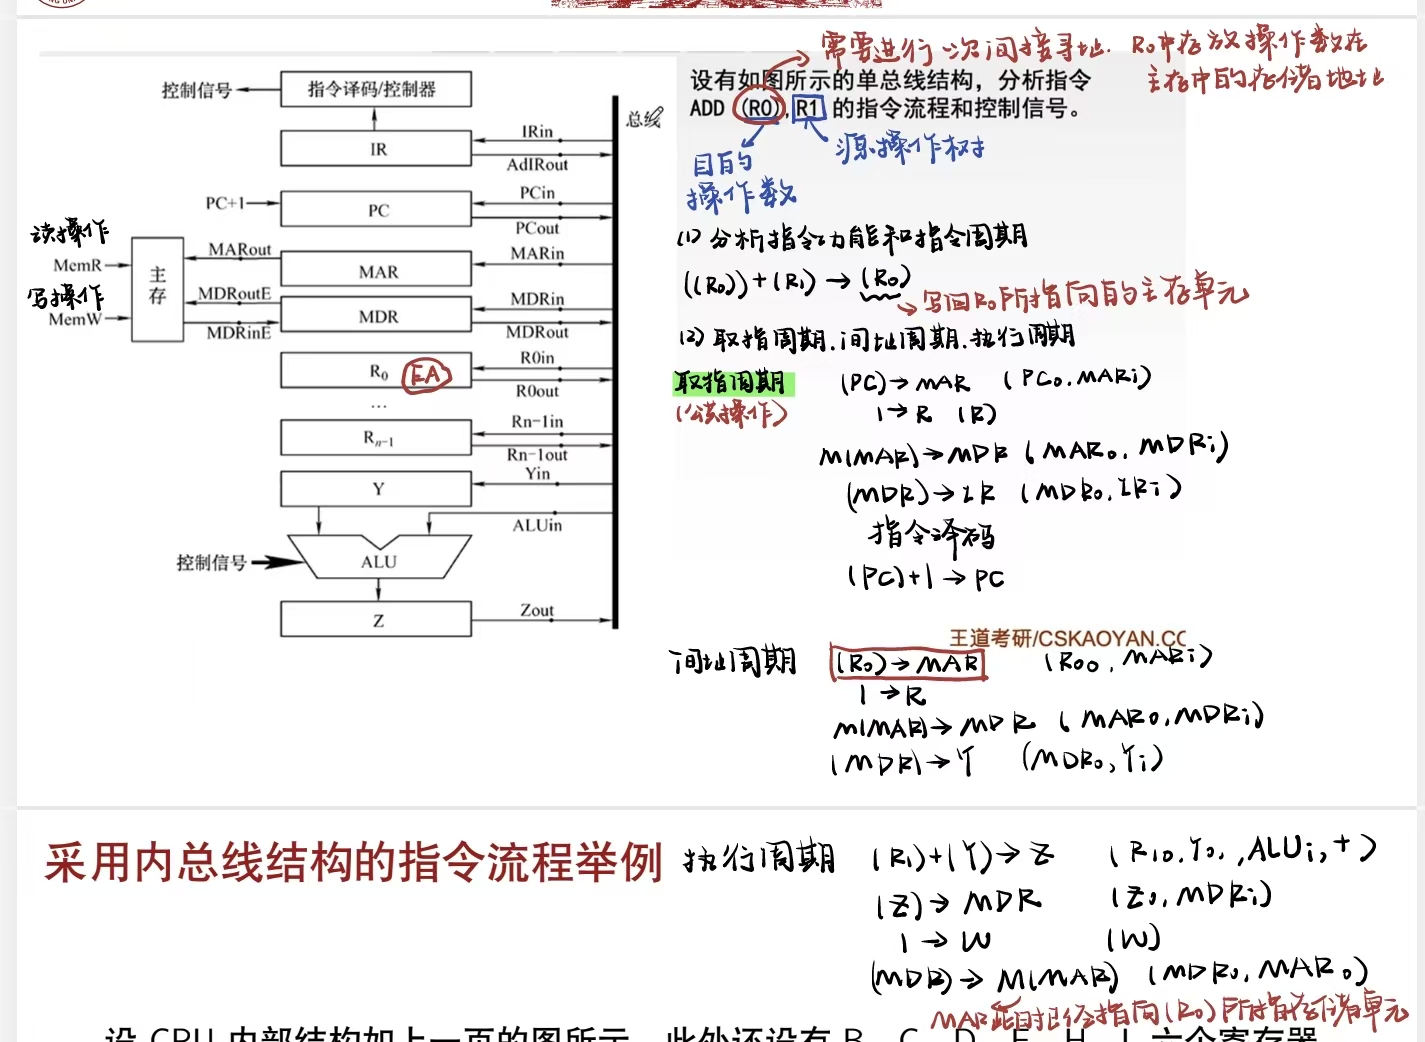 需要进行一次间接寻址. R0中存放操作数在
主存中的存储地址
设有如图所示的单总线结构，分析指令
ADD (R0),R1 的指令流程和控制信号。
目的
操作数
源操作树
控制信号
指令译码/控制器
总线
IR
IRin
AdIRout
PC+1
PC
PCin
PCout
读操作
MemR
写操作
MemW
主存
MARout
MAR
MARin
MDRoutE
MDRinE
MDR
MDRin
MDRout
R0 EA
R0in
R0out
…
Rn-1
Rn-1in
Rn-1out
Y
Yin
ALUin
控制信号
ALU
Z
Zout
(1) 分析指令功能和指令周期
((R0))+(R1)→(R0)
写回R0所指向的主存单元
(2) 取指周期.间址周期.执行周期
取指周期 (PC)→MAR (PCo.MARi)
(公共操作) 1→R (R)
M(MAR)→MDR (MARo, MDRi)
(MDR)→IR (MDRo,IRi)
指令译码
(PC)+1→PC
王道考研/CSKAOYAN.CC
间址周期 (R0)→MAR (R0o,MARi)
1→R
M(MAR)→MDR (MARo,MDRi)
(MDR)→Y (MDRo,Yi)
采用内总线结构的指令流程举例
执行周期 (R1)+(Y)→Z (R1o,Yo,,ALUi,+)
(Z)→MDR (Zo,MDRi)
1→W (W)
(MDR)→M(MAR) (MDRo,MARo)
MAR 指向(R0)所指存储单元
设 CPU 内部结构如上一页的图所示，此外还设有 B、C、D、E、H、L 六个寄存器